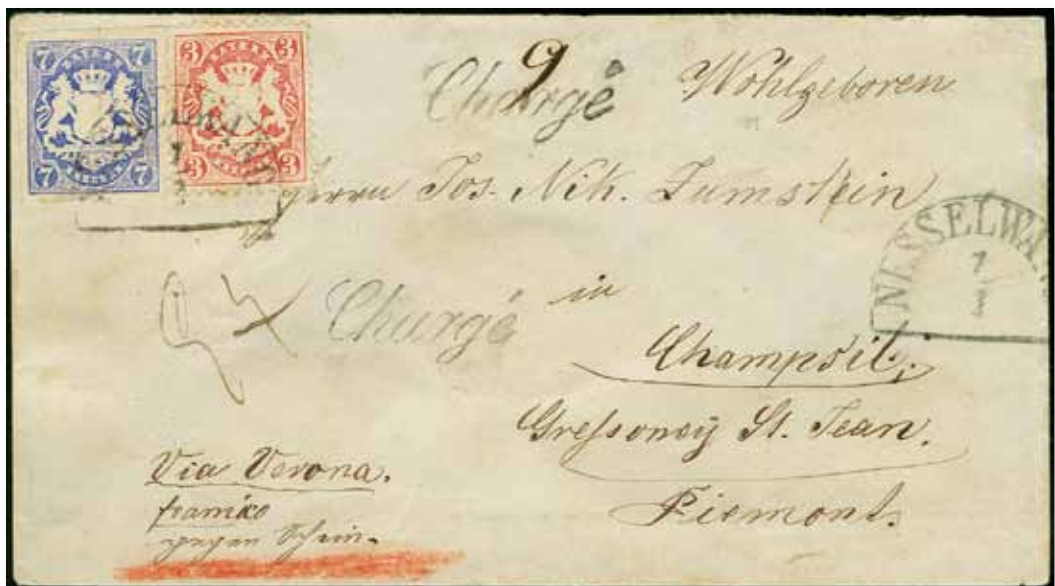 7 7 3 BAYERN 3
7 7 3 3
9
Chargé Wohlgeboren
Herrn Jos. Nik. Zumstein
NESSELWA
7
2
Chargé in
Champsil,
Gressoney St. Jean.
Piemont.
Via Verona.
franko
gegen Schein.